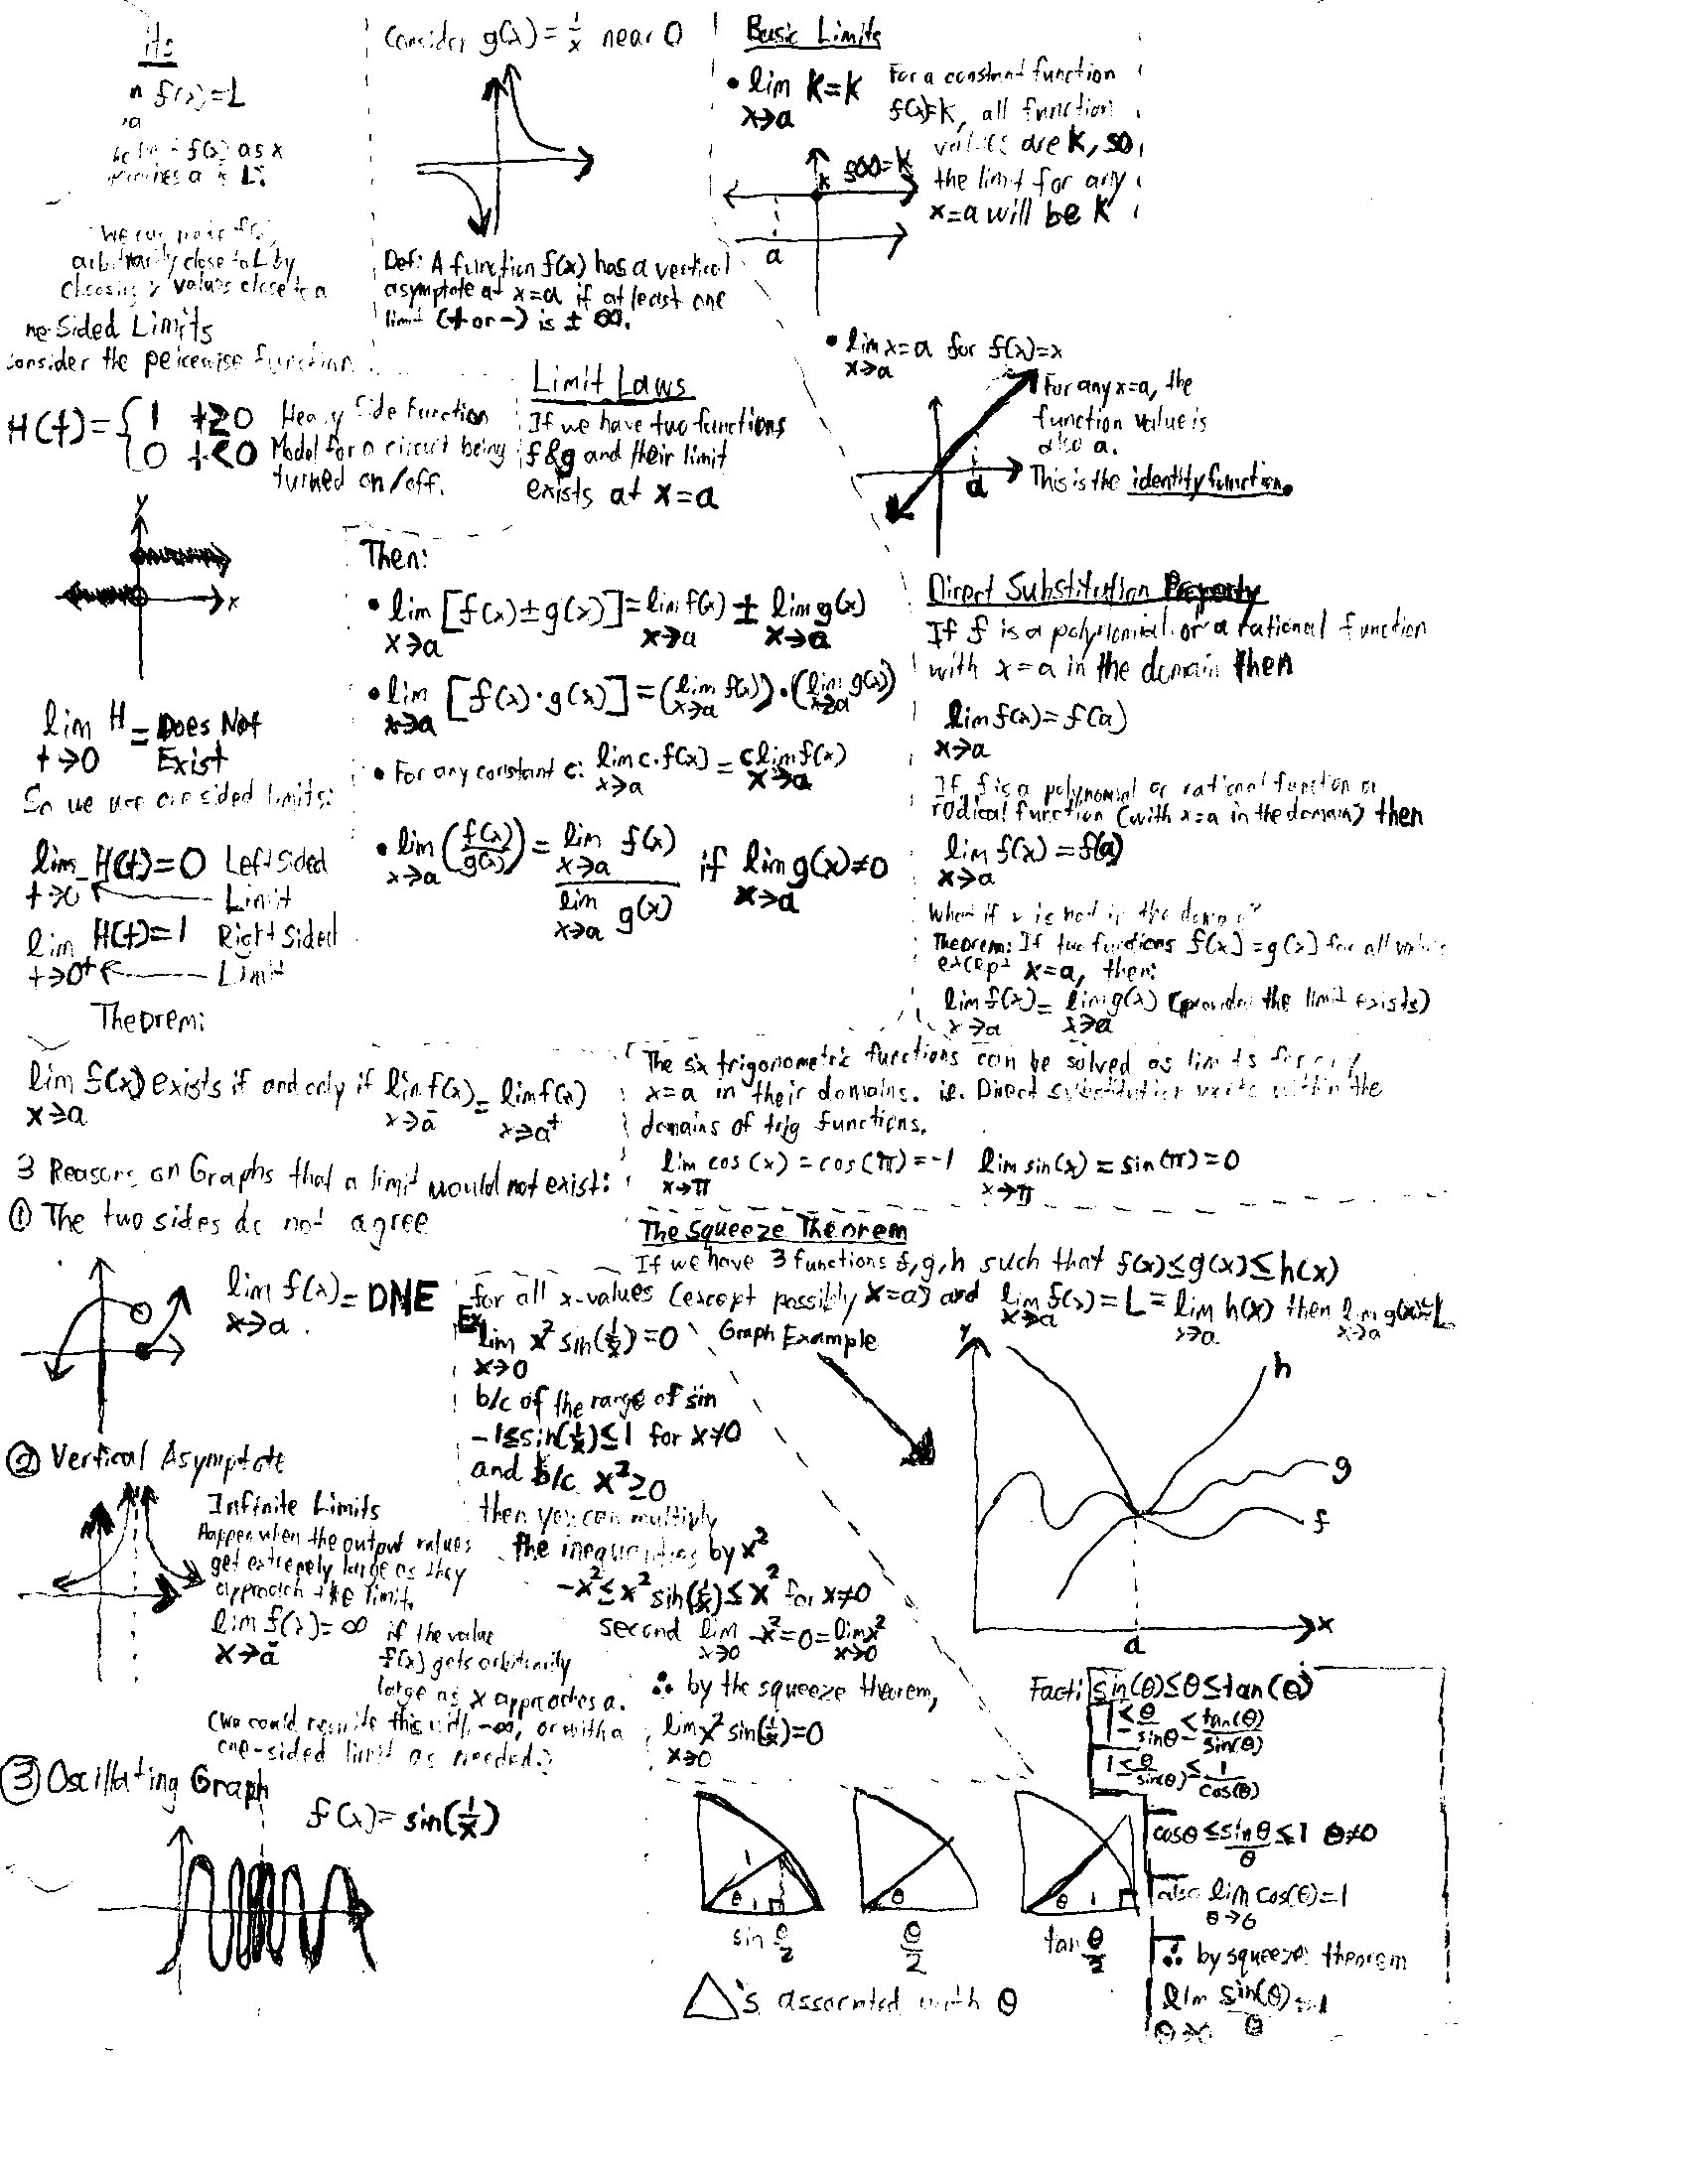 f(x)=L
f(x) as x
a is L.
We can make f(x)
arbitrarily close to L by
choosing x values close to a
ne-Sided Limits
onsider the peicewise function
H(t)={1 t≥0
0 t<0
Heavy Side Function
Model for a circuit being
turned on/off.
y
x
lim H = Does Not
t→0 Exist
So we use one sided limits:
lim H(t)=0 Left Sided
t→0⁻ Limit
lim H(t)=1 Right Sided
t→0⁺ Limit
Theorem:
lim f(x) exists if and only if lim f(x) = lim f(x)
x→a x→a⁻ x→a⁺
3 Reasons on Graphs that a limit would not exist:
① The two sides do not agree
lim f(x) = DNE
x→a
② Vertical Asymptote
Infinite Limits
Happen when the output values
get extremely large as they
approach the limit.
lim f(x)=∞ if the value
x→a f(x) gets arbitrarily
large as x approaches a.
(We could rewrite this with -∞, or with a
one-sided limit as needed.)
③ Oscillating Graph
f(x)=sin(1/x)
Consider g(x)=1/x near 0
Def: A function f(x) has a vertical
asymptote at x=a if at least one
limit (+ or -) is ± ∞.
Limit Laws
If we have two functions
f & g and their limit
exists at x=a
Then:
• lim [f(x)±g(x)]=lim f(x) ± lim g(x)
x→a x→a x→a
• lim [f(x)·g(x)]=(lim f(x))·(lim g(x))
x→a x→a x→a
• For any constant c: lim c·f(x) = c lim f(x)
x→a x→a
• lim (f(x)/g(x)) = lim f(x) / lim g(x) if lim g(x)≠0
x→a x→a x→a x→a
Basic Limits
• lim K=K
x→a
For a constant function
f(x)=K, all function
values are K, so
the limit for any
x=a will be K
f(x)=K
k
a
• lim x=a for f(x)=x
x→a
For any x=a, the
function value is
also a.
This is the identity function.
a
Direct Substitution Property
If f is a polynomial or a rational function
with x=a in the domain then
lim f(x)=f(a)
x→a
If f is a polynomial or rational function or
radical function (with x=a in the domain) then
lim f(x)=f(a)
x→a
What if x is not in the domain?
Theorem: If two functions f(x)=g(x) for all values
except x=a, then:
lim f(x)= lim g(x) (provided the limit exists)
x→a x→a
The six trigonometric functions can be solved as limits for any
x=a in their domains. ie. Direct substitution works within the
domains of trig functions.
lim cos(x)=cos(π)=-1 lim sin(x)=sin(π)=0
x→π x→π
The Squeeze Theorem
If we have 3 functions f,g,h such that f(x)≤g(x)≤h(x)
for all x-values (except possibly x=a) and lim f(x)=L=lim h(x) then lim g(x)=L
x→a x→a x→a
Ex
lim x² sin(1/x)=0
x→0
b/c of the range of sin
-1≤sin(1/x)≤1 for x≠0
and b/c x²≥0
then you can multiply
the inequalities by x²
-x²≤x² sin(1/x)≤x² for x≠0
second lim -x²=0=lim x²
x→0 x→0
∴ by the squeeze theorem,
lim x² sin(1/x)=0
x→0
Graph Example
y
h
g
f
a
x
Fact: sin(θ)≤θ≤tan(θ)
1≤θ/sinθ≤tan(θ)/sin(θ)
1≤θ/sin(θ)≤1/cos(θ)
cosθ≤sinθ/θ≤1 θ≠0
also lim cos(θ)=1
θ→0
∴ by squeeze theorem
lim sin(θ)/θ=1
θ→0
1 θ 1
θ
θ 1
sin θ/2
θ/2
tan θ/2
△'s associated with θ